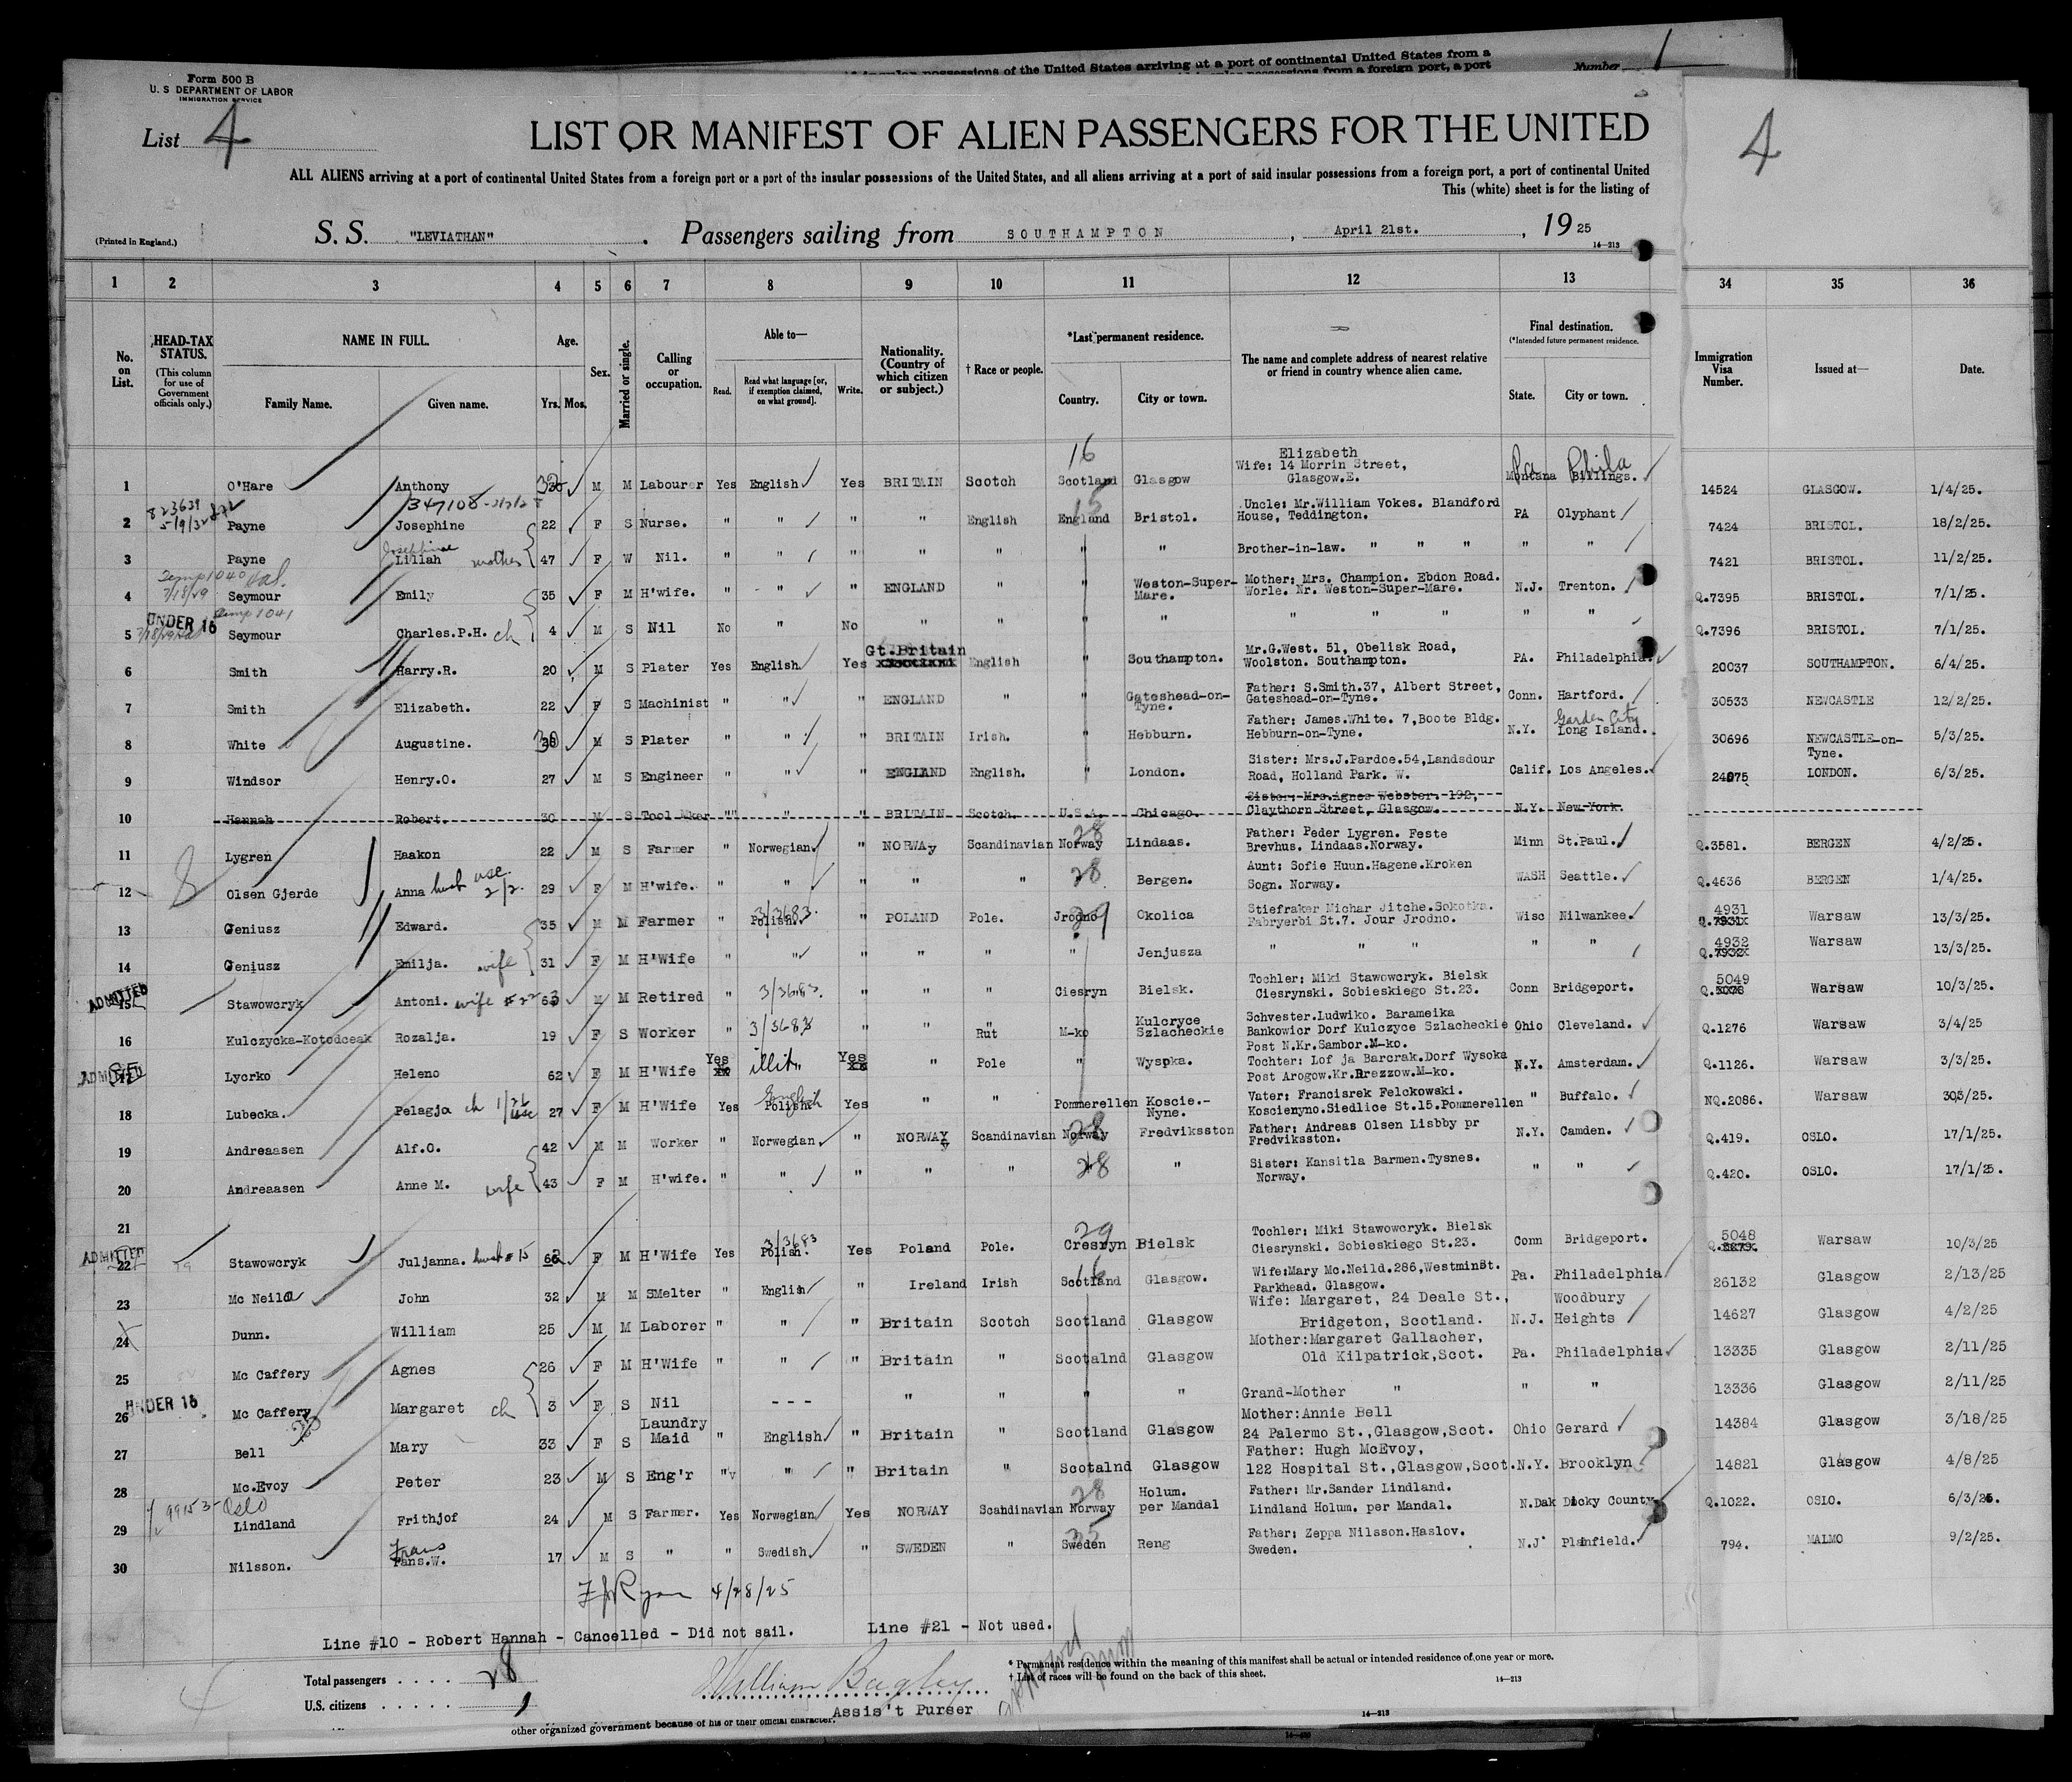 insular possessions of the United States arriving at a port of continental United States from a
possessions from a foreign port, a port
Number 1
Form 500 B
U. S DEPARTMENT OF LABOR
IMMIGRATION SERVICE
List 4
LIST OR MANIFEST OF ALIEN PASSENGERS FOR THE UNITED
4
ALL ALIENS arriving at a port of continental United States from a foreign port or a port of the insular possessions of the United States, and all aliens arriving at a port of said insular possessions from a foreign port, a port of continental United
This (white) sheet is for the listing of
(Printed in England.)
S. S. "LEVIATHAN" . Passengers sailing from SOUTHAMPTON , April 21st. , 19 25
14—213
1 2 3 4 5 6 7 8 9 10 11 12 13 34 35 36
No. on List.
HEAD-TAX STATUS.
(This column for use of Government officials only.)
NAME IN FULL.
Family Name. Given name.
Age.
Yrs. Mos.
Sex.
Married or single.
Calling or occupation.
Able to—
Read. Read what language [or, if exemption claimed, on what ground]. Write.
Nationality. (Country of which citizen or subject.)
† Race or people.
*Last permanent residence.
Country. City or town.
The name and complete address of nearest relative or friend in country whence alien came.
Final destination.
(*Intended future permanent residence.
State. City or town.
Immigration Visa Number.
Issued at—
Date.
1 O'Hare Anthony 32 M M Labourer Yes English Yes BRITAIN Scotch 16 Scotland Glasgow Elizabeth Wife: 14 Morrin Street, Glasgow.E. Montana Billings. Pa Phila 14524 GLASGOW. 1/4/25.
823639 5/9/32 347108
2 Payne Josephine 22 F S Nurse. " " " " English 15 England Bristol. Uncle: Mr.William Vokes. Blandford House, Teddington. PA Olyphant 7424 BRISTOL. 18/2/25.
3 Payne Josephine Liliah mother 47 F W Nil. " " " " " " " Brother-in-law. " " " " " 7421 BRISTOL. 11/2/25.
Temp 1040 7/18/29
4 Seymour Emily 35 F M H'wife. " " " ENGLAND " " Weston-Super-Mare. Mother: Mrs. Champion. Ebdon Road. Worle. Nr. Weston-Super-Mare. N.J. Trenton. Q.7395 BRISTOL. 7/1/25.
UNDER 16 Temp 1041
5 Seymour Charles.P.H. ch 4 M S Nil No " No " " " " " " " " " Q.7396 BRISTOL. 7/1/25.
6 Smith Harry.R. 20 M S Plater Yes English Yes Gt.Britain English " Southampton. Mr.G.West. 51, Obelisk Road, Woolston. Southampton. PA. Philadelphia. 20037 SOUTHAMPTON. 6/4/25.
7 Smith Elizabeth. 22 F S Machinist " " " ENGLAND " " Gateshead-on-Tyne. Father: S.Smith.37, Albert Street, Gateshead-on-Tyne. Conn. Hartford. 30533 NEWCASTLE 12/2/25.
8 White Augustine. 30 M S Plater " " " BRITAIN Irish. " Hebburn. Father: James.White. 7,Boote Bldg. Hebburn-on-Tyne. N.Y. Garden City Long Island. 30696 NEWCASTLE-on-Tyne. 5/3/25.
9 Windsor Henry.O. 27 M S Engineer " " " ENGLAND English. " London. Sister: Mrs.J.Pardoe.54,Landsdour Road, Holland Park. W. Calif. Los Angeles. 24975 LONDON. 6/3/25.
10 Hannah Robert. 30 M S Tool Mker "" " " BRITAIN Scotch. U.S.A. Chicago. Sister: Mrs.Agnes Webster. 192, Claythorn Street, Glasgow. N.Y. New York.
11 Lygren Haakon 22 M S Farmer " Norwegian " NORWAy Scandinavian 28 Norway Lindaas. Father: Peder Lygren. Feste Brevhus. Lindaas.Norway. Minn St.Paul. Q.3581. BERGEN 4/2/25.
12 Olsen Gjerde Anna husb use 2/2. 29 F M H'wife. " " " " " 28 Bergen. Aunt: Sofie Huun.Hagene.Kroken Sogn. Norway. WASH Seattle. Q.4636 BERGEN 1/4/25.
13 Geniusz Edward. 35 M M Farmer " 3/3683. Polish. " POLAND Pole. Jrodno 29 Okolica Stiefraker Michar Jitche.Sokotka. Fabryerbi St.7. Jour Jrodno. Wisc Nilwankee. 4931 Q.7931X Warsaw 13/3/25.
14 Geniusz Emilja. wife 31 F M H'Wife " " " " " " Jenjusza " " " " " 4932 Q.7932X Warsaw 13/3/25.
ADMITTED
15 Stawowcryk Antoni. wife #22 63 M M Retired " 3/3683. " " " Ciesryn Bielsk. Tochler: Miki Stawowcryk. Bielsk Ciesrynski. Sobieskiego St.23. Conn Bridgeport. 5049 Warsaw 10/3/25.
16 Kulczycka-Kotodceak Rozalja. 19 F S Worker " 3/3683 " " " Rut M-ko Kulcryce Szlacheckie Schvester.Ludwiko. Barameika Bankowicr Dorf Kulczyce Szlacheckie Post N.Kr.Sambor.M-ko. Ohio Cleveland. Q.1276 Warsaw 3/4/25
ADMITTED
17 Lycrko Heleno 62 F M H'Wife Yes illit. Yes " Pole " Wyspka. Tochter: Lof ja Barcrak.Dorf Wysoka Post Arogow.Kr.Rrezzow.M-ko. N.Y. Amsterdam. Q.1126. Warsaw 3/3/25.
18 Lubecka. Pelagja ch 27 F M H'Wife Yes English Polish Yes " " Pommerellen Koscie.-Nyne. Vater: Francisrek Felckowski. Koscienyno.Siedlice St.15.Pommerellen " Buffalo. NQ.2086. Warsaw 303/25.
19 Andreaasen Alf.O. 42 M M Worker " Norwegian " NORWAY Scandinavian 28 Norway Fredviksston Father: Andreas Olsen Lisbby pr Fredviksston. N.Y. Camden. Q.419. OSLO. 17/1/25.
20 Andreaasen Anne M. wife 43 F M H'wife. " " " " " 28 " Sister: Kansitla Barmen.Tysnes. Norway. " " Q.420. OSLO. 17/1/25.
21
ADMITTED
22 Stawowcryk Juljanna. husb #15 F M H'Wife Yes 3/3683 Polish. Yes Poland Pole. 29 Cresryn Bielsk Tochler: Miki Stawowcryk. Bielsk Ciesrynski. Sobieskiego St.23. Conn Bridgeport. 5048 Warsaw 10/3/25
23 Mc Neild John 32 M M SMelter " English " Ireland Irish 16 Scotland Glasgow. Wife:Mary Mc.Neild.286,WestminSt. Parkhead. Glasgow. Pa. Philadelphia 26132 Glasgow 2/13/25
24 Dunn. William 25 M M Laborer " " " Britain Scotch Scotland Glasgow Wife: Margaret, 24 Deale St., Bridgeton, Scotland. N.J. Woodbury Heights 14627 Glasgow 4/2/25
25 Mc Caffery Agnes 26 F M H'Wife " " " Britain " Scotalnd Glasgow Mother:Margaret Gallacher, Old Kilpatrick,Scot. Pa. Philadelphia 13335 Glasgow 2/11/25
UNDER 16
26 Mc Caffery Margaret ch 3 F S Nil - - - " " " " Grand-Mother " " " 13336 Glasgow 2/11/25
27 Bell Mary 33 F S Laundry Maid " English " Britain " Scotland Glasgow Mother:Annie Bell 24 Palermo St.,Glasgow,Scot. Ohio Gerard 14384 Glasgow 3/18/25
28 Mc.Evoy Peter 23 M S Eng'r " " " Britain " Scotalnd Glasgow Father: Hugh McEvoy, 122 Hospital St.,Glasgow,Scot. N.Y. Brooklyn 14821 Glasgow 4/8/25
99153- Oslo
29 Lindland Frithjof 24 M S Farmer. Yes Norwegian Yes NORWAY Scandinavian 28 Norway Holum. per Mandal Father: Mr.Sander Lindland. Lindland Holum. per Mandal. N.Dak Dicky County. Q.1022. OSLO. 6/3/25.
30 Nilsson. Frans Fans.W. 17 M S " " Swedish " SWEDEN " 35 Sweden Reng Father: Zeppa Nilsson.Haslov. Sweden. N.J. Planfield. 794. MALMO 9/2/25.
Ryan 4/28/25
Line #10 - Robert Hannah - Cancelled - Did not sail. Line #21 - Not used.
Total passengers . . . . 28
U.S. citizens . . . . .
William Bagley
Assis't Purser
* Permanent residence within the meaning of this manifest shall be actual or intended residence of one year or more.
† List of races will be found on the back of this sheet.
14—213
14—213
other organized government because of his or their official character.